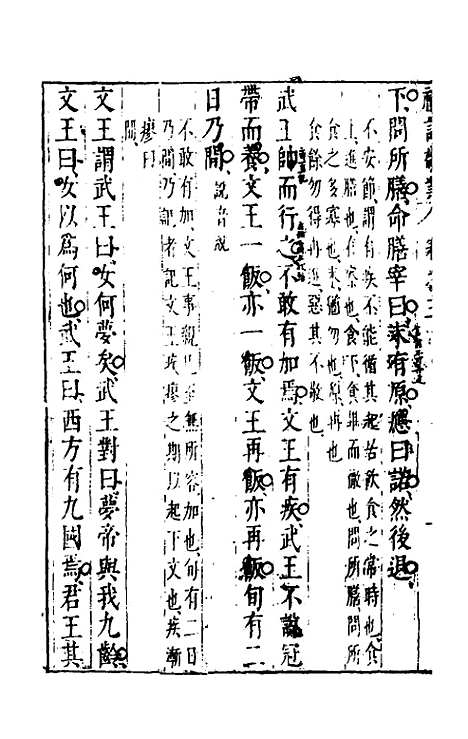 下問所膳命膳宰曰末有原應曰諾然後退
不安節謂有疾不能循其起居飲食之常時也食
上進膳也在察也食下食畢而徹也問所膳問所
食之多寡也末猶勿也原再也
食餘勿得再進惡其不敬也
武王帥而行之不敢有加焉文王有疾武王不說冠
帶而養文王一飯亦一飯文王再飯亦再飯旬有二
日乃間說音脫
不敢有加文王事親已至無所容加也旬有二日
乃間乃記者記文王疾瘳之期以起下文也疾漸
瘳曰
間
文王謂武王曰女何夢矣武王對曰夢帝與我九齡
文王曰女以為何也武王曰西方有九國焉君王其